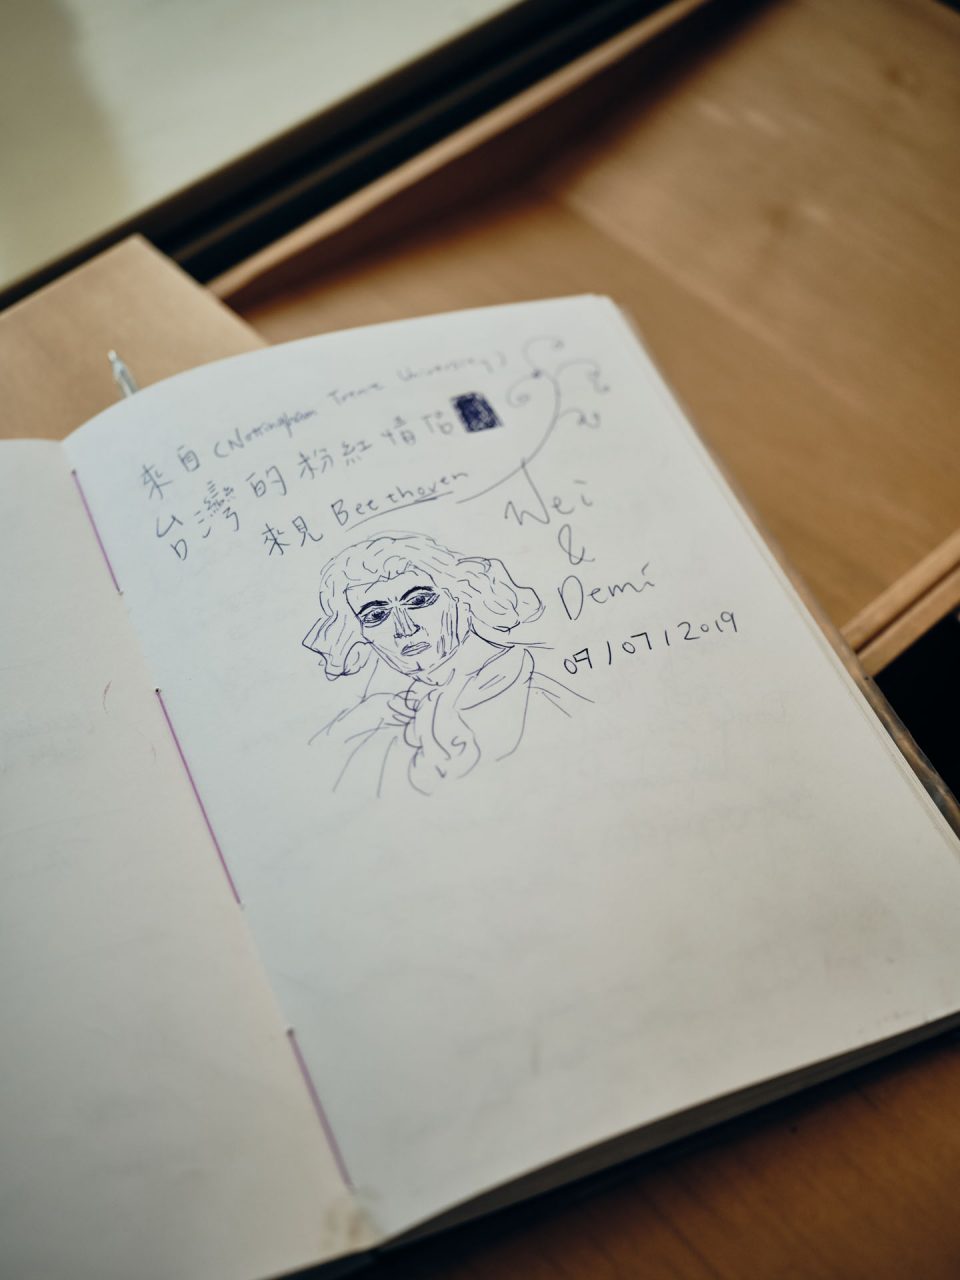 來自 (Nottingham Trent University)
台灣的粉紅情侶
來見 Beethoven
Wei
&
Demi
07/07/2019